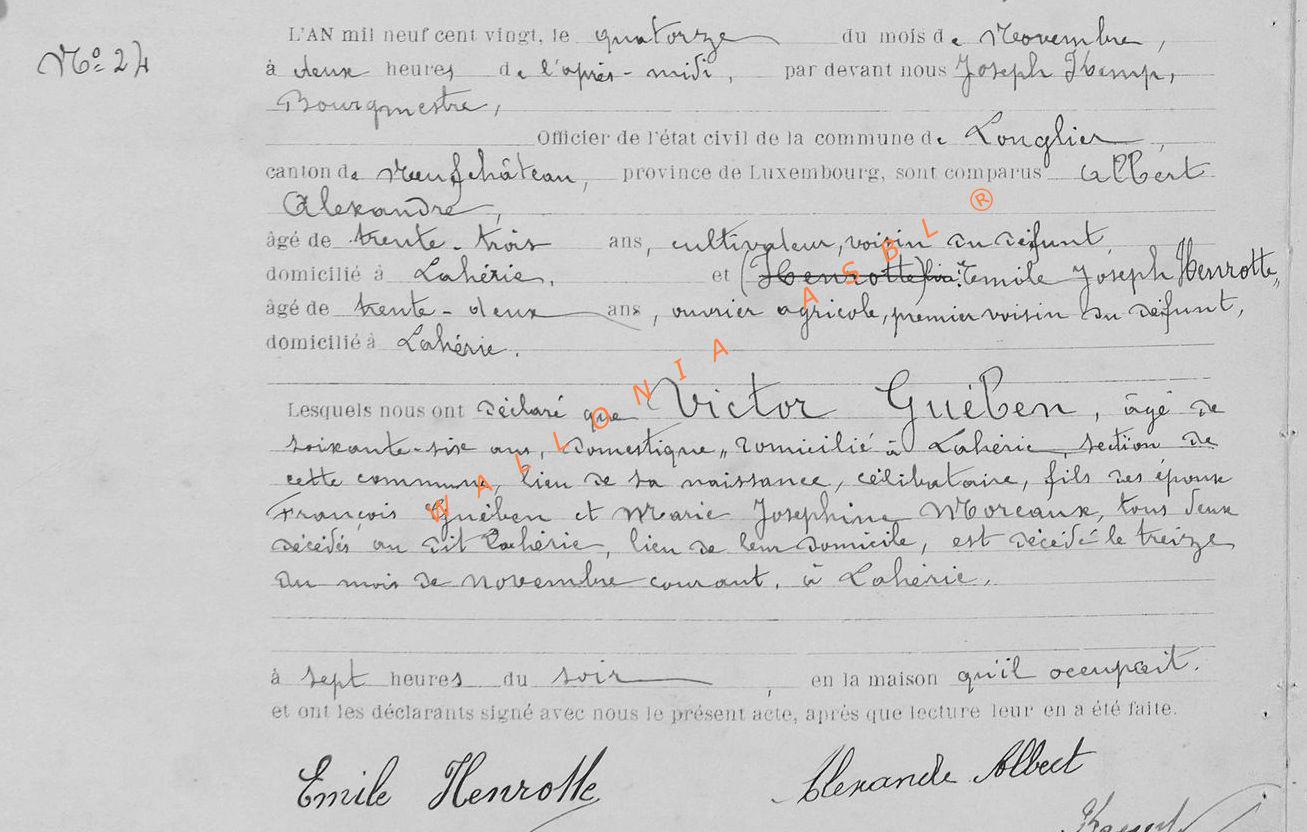 L'AN mil neuf cent vingt, le quatorze du mois de Novembre,
No 24
à deux heures de l'après-midi, par devant nous Joseph Kemp,
Bourgmestre,
Officier de l'état civil de la commune de Longlier,
canton de Neufchâteau, province de Luxembourg, sont comparus Albert
Alexandre,
âgé de trente-trois ans, cultivateur, voisin du défunt,
domicilié à Lahérie, et (Henrotte) Emile Joseph Henrotte,
âgé de trente-deux ans, ouvrier agricole, premier voisin du défunt,
domicilié à Lahérie.
Lesquels nous ont déclaré que Victor Guében, âgé de
soixante-six ans, domestique, domicilié à Lahérie, section de
cette commune, lieu de sa naissance, célibataire, fils des époux
François Guében et Marie Josephine Moreaux, tous deux
décédés au dit Lahérie, lieu de leur domicile, est décédé le treize
du mois de novembre courant, à Lahérie,
à sept heures du soir, en la maison qu'il occupait.
et ont les déclarants signé avec nous le présent acte, après que lecture leur en a été faite.
Emile Henrotte Alexandre Albert
WALLONIA ASBL ®